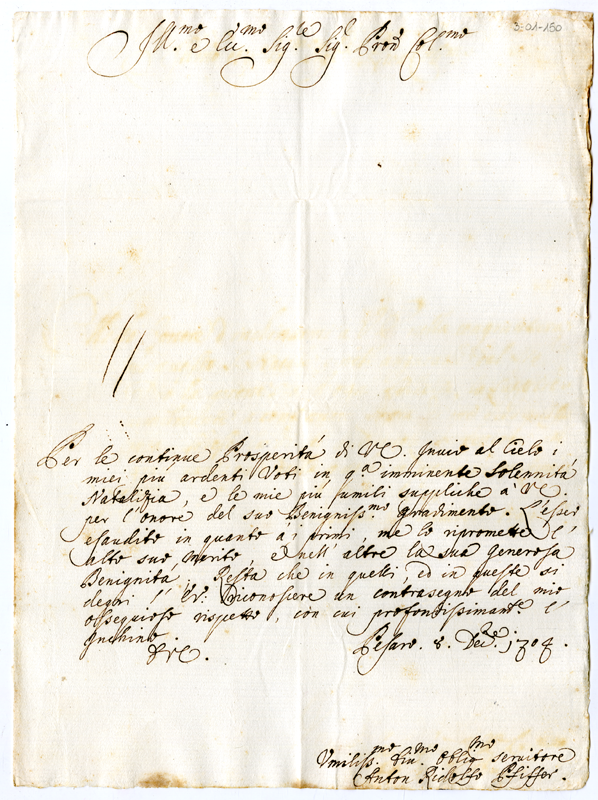 3:01-150
Ill.mo e Ecc.mo Sig.re Sig.r Pron Col.mo
Per le continue Prosperità di VE. Invio al Cielo i
miei più ardenti Voti in q.ta imminente Solennità
Natalizia, e le mie più umili suppliche à VE
per l'onore del suo Benigniss.mo gradimento. L'esser
esaudito in quanto a' primi, me lo ripromette l'
alto suo merito, e nell' altre la sua generosa
Benignità. Resta che in quelli, ed in queste si
degni l' E.V. riconoscere un contrasegno del mio
ossequioso rispetto, con cui profondissimam.te l'
Inchino.
DVE. Pesaro. 8. Dec.re 1704.
Vmiliss.mo Div.mo Oblig.mo servitore
Anton Ridolfo Pfiffer.